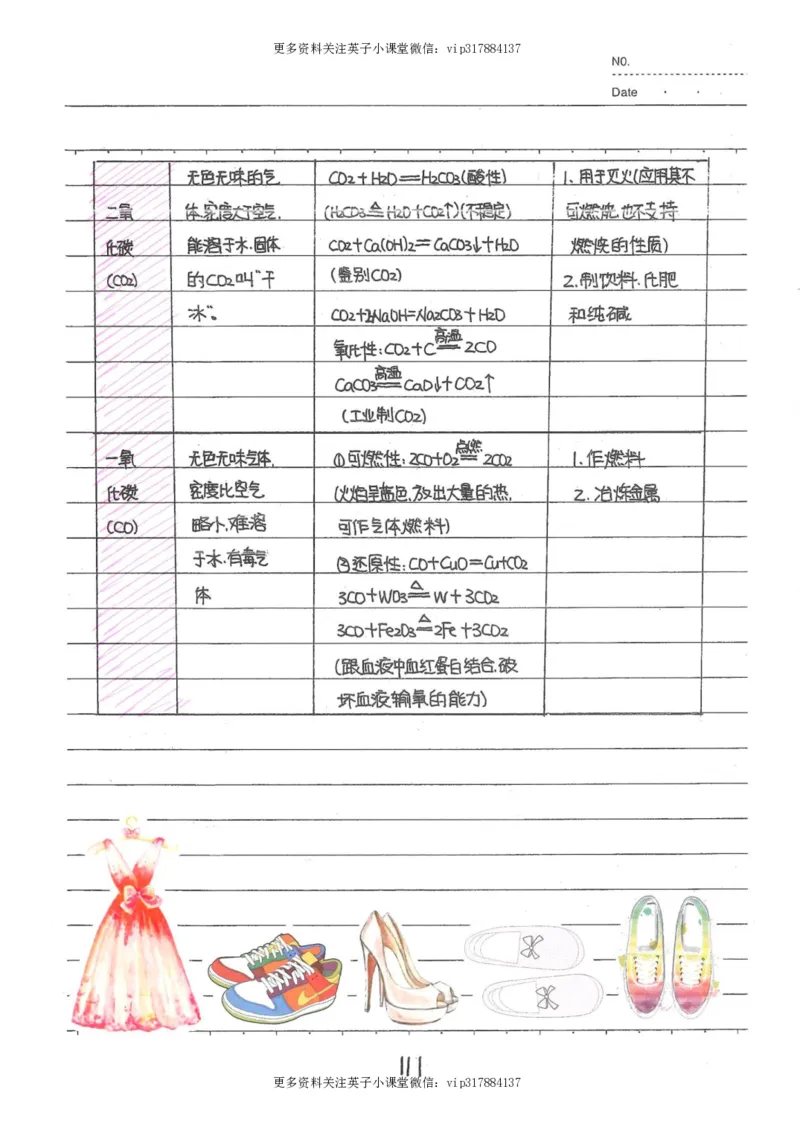 更多资料关注英子小课堂微信：vip317884137
NO.
Date
无色无味的气 CO2+H2O==H2CO3(酸性) 1、用于灭火(应用其不
二氧 体,密度大于空气, (H2CO3≜H2O+CO2↑)(不稳定) 可燃烧,也不支持
化碳 能溶于水.固体 CO2+Ca(OH)2=CaCO3↓+H2O 燃烧的性质)
(CO2) 的CO2叫"干 (鉴别CO2) 2.制饮料.化肥
冰"。 CO2+2NaOH=Na2CO3+H2O 和纯碱
氧化性:CO2+C 高温== 2CO
CaCO3 高温== CaO↓+CO2↑
(工业制CO2)
一氧 无色无味气体, ①可燃性:2CO+O2 点燃== 2CO2 1.作燃料
化碳 密度比空气 (火焰呈蓝色,放出大量的热, 2.冶炼金属
(CO) 略小,难溶 可作气体燃料)
于水,有毒气 ②还原性:CO+CuO=Cu+CO2
体 3CO+WO3 △== W+3CO2
3CO+Fe2O3 △== 2Fe+3CO2
(跟血液中血红蛋白结合,破
坏血液输氧的能力)
111
更多资料关注英子小课堂微信：vip317884137